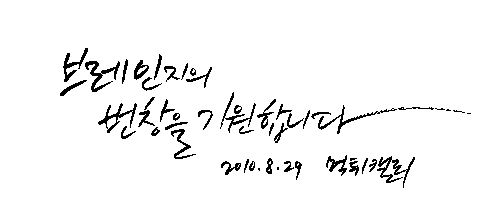 브레인지의
번창을 기원합니다
2010.8.29 먹튀캘리